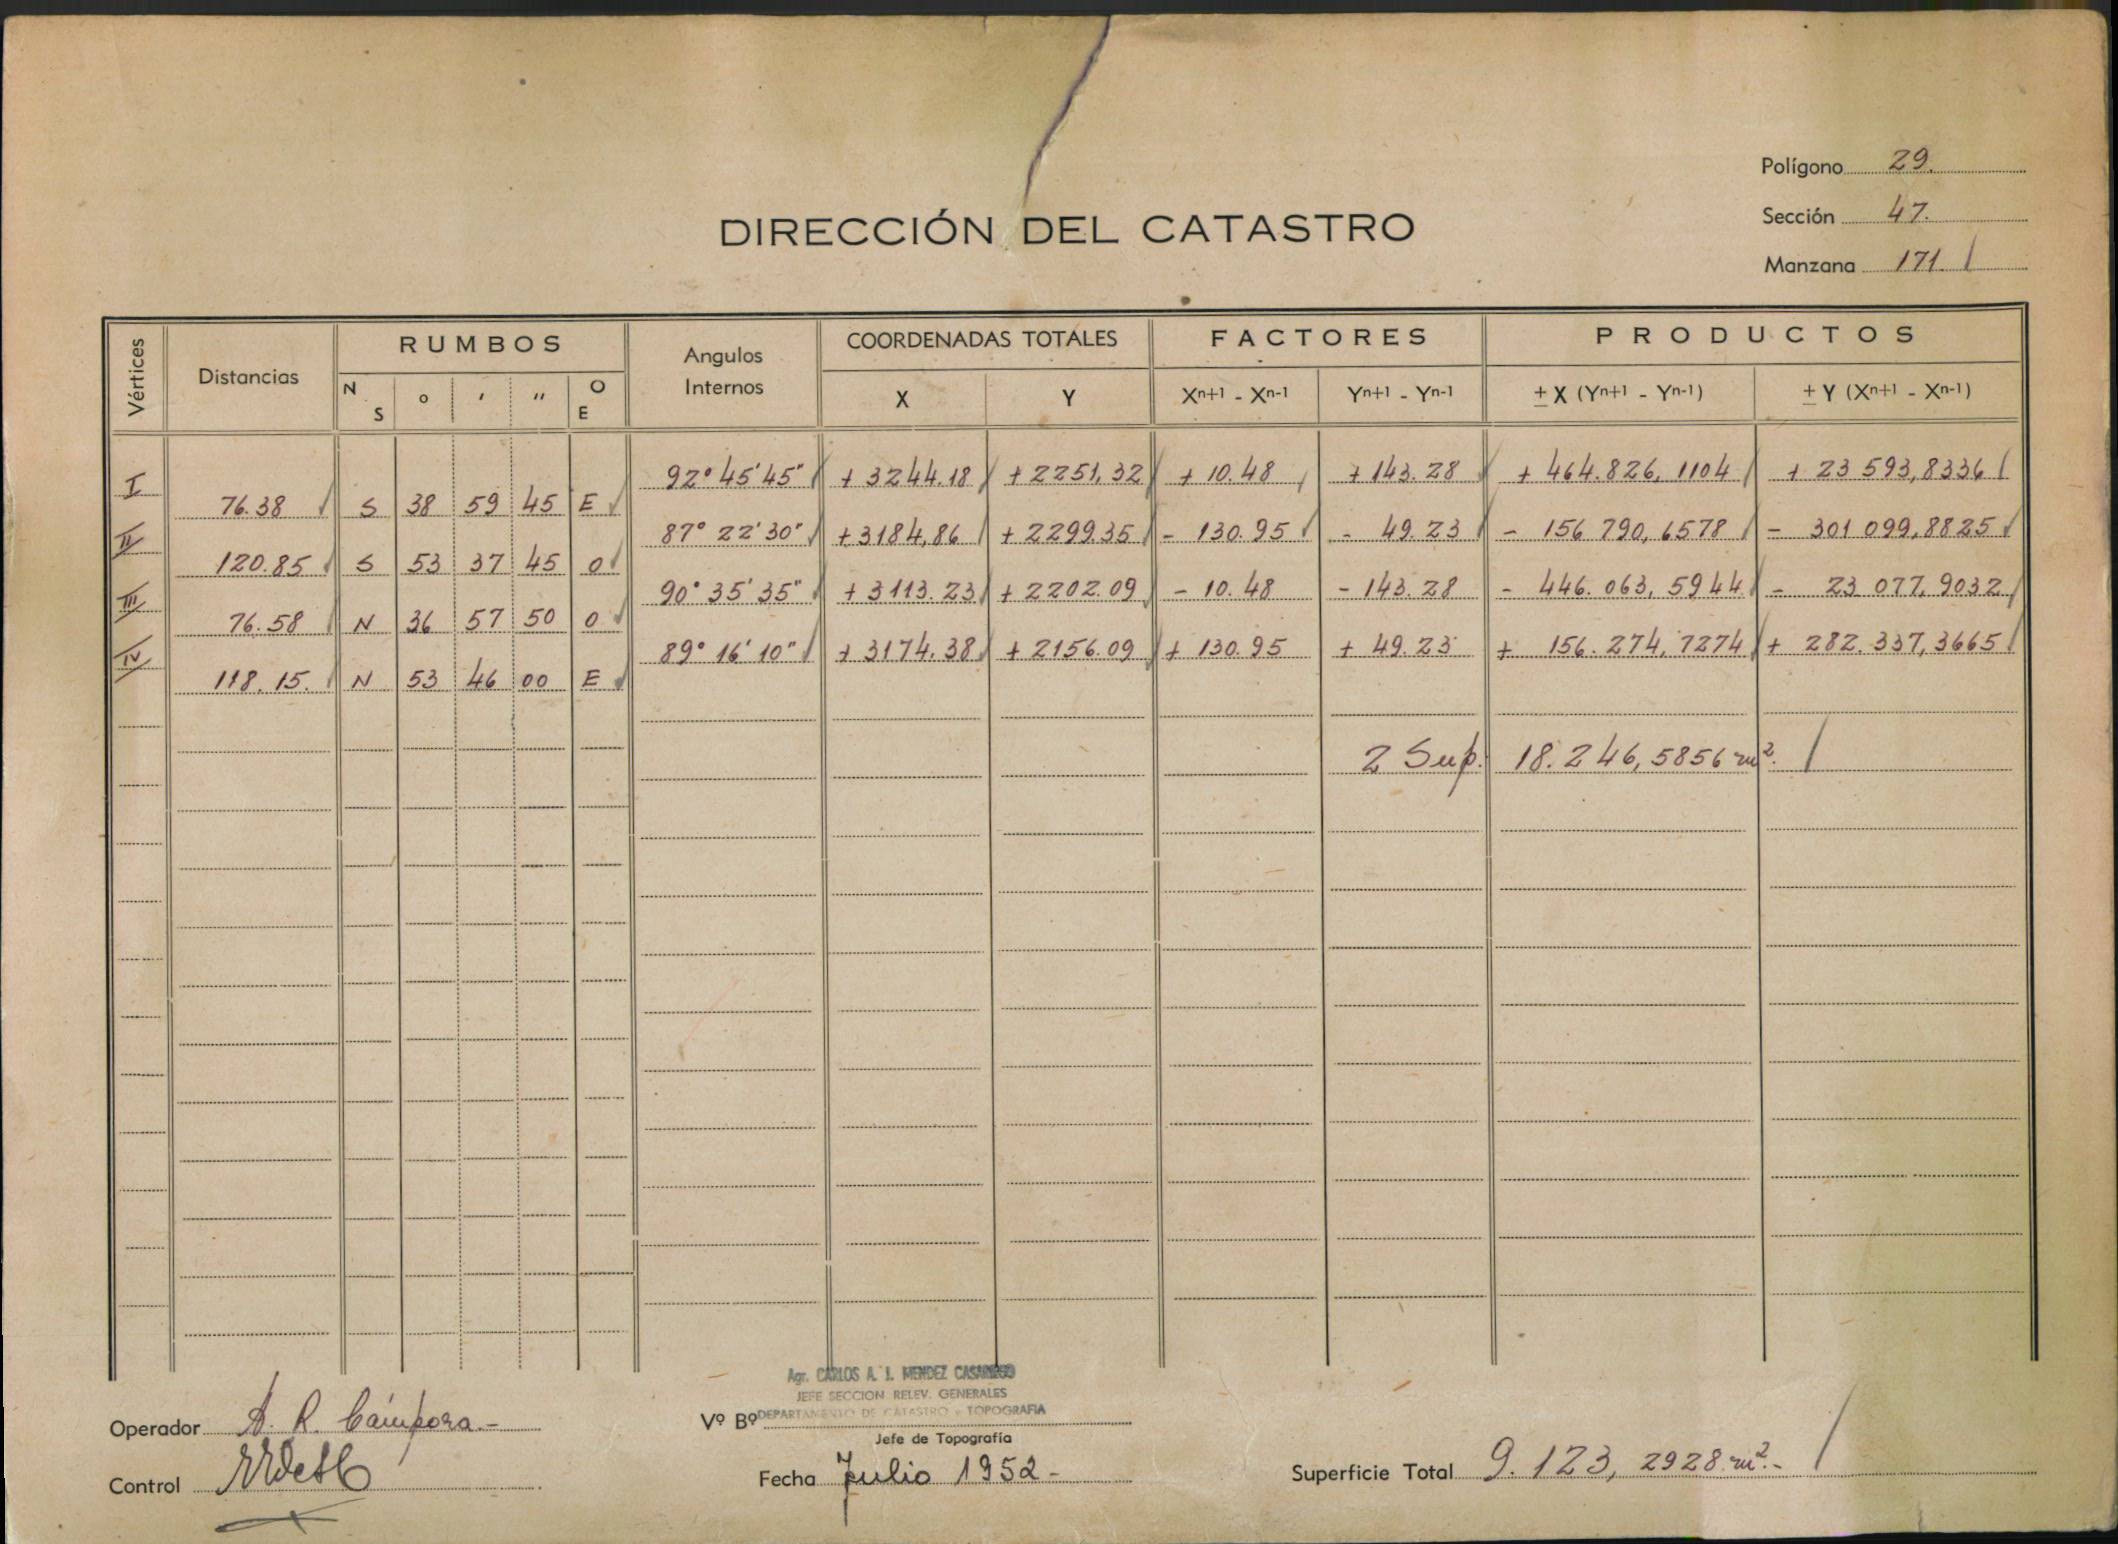 Polígono 29.
Sección 47.
Manzana 171.
DIRECCIÓN DEL CATASTRO
Vértices Distancias RUMBOS Angulos Internos COORDENADAS TOTALES FACTORES PRODUCTOS
N S ° ' " O E X Y Xn+1 - Xn-1 Yn+1 - Yn-1 ± X (Yn+1 - Yn-1) ± Y (Xn+1 - Xn-1)
I 92° 45' 45" + 3244.18 + 2251,32 + 10.48 + 143.28 + 464.826, 1104 + 23 593,8336
76.38 S 38 59 45 E
II 87° 22' 30" + 3184,86 + 2299.35 - 130.95 - 49.23 - 156 790,6578 - 301 099,8825
120.85 S 53 37 45 O
III 90° 35' 35" + 3113.23 + 2202.09 - 10.48 - 143.28 - 446.063, 5944 - 23 077,9032
76.58 N 36 57 50 O
IV 89° 16' 10" + 3174.38 + 2156.09 + 130.95 + 49.23 + 156.274,7274 + 282.337,3665
118.15. N 53 46 00 E
2 Sup. 18.246,5856 m².
Agr. CARLOS A. I. MENDEZ CASARIEGO
JEFE SECCION RELEV. GENERALES
DEPARTAMENTO DE CATASTRO y TOPOGRAFIA
Operador A. R. Cámpora.-
Vº Bº
Jefe de Topografía
Control
Fecha Julio 1952-
Superficie Total 9.123, 2928 m².-